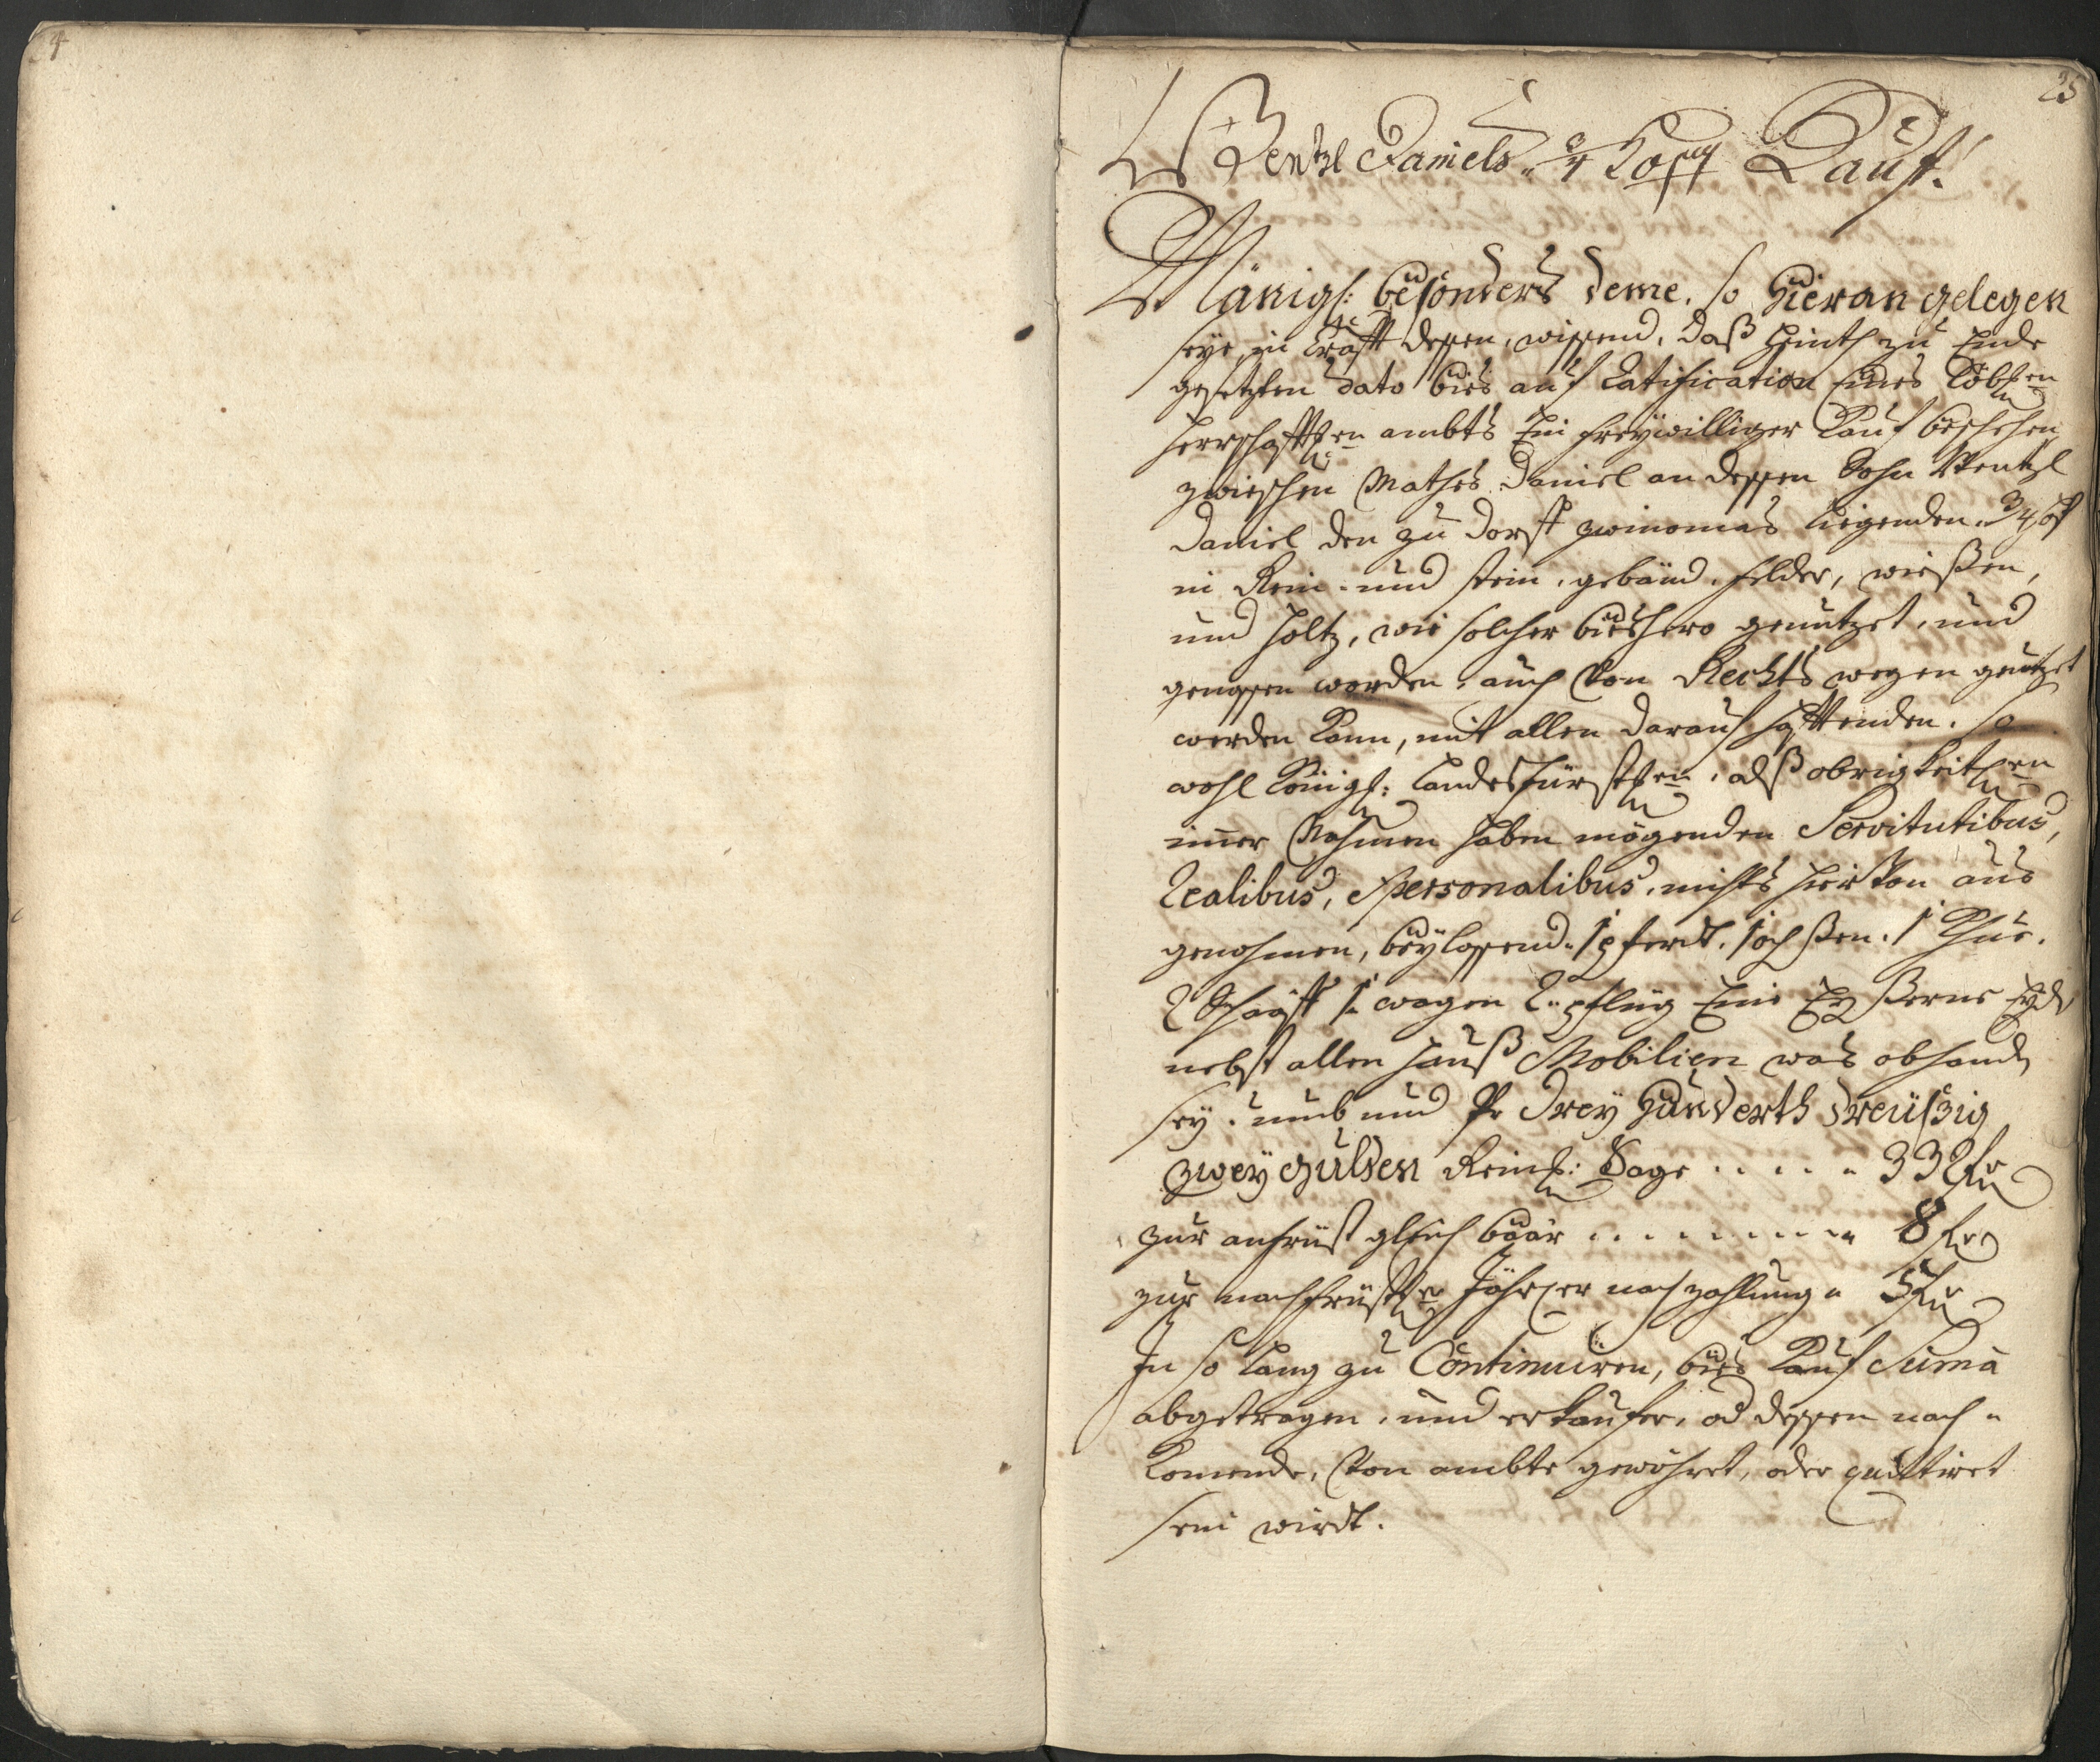 4
25
Wentzl Daniels Kauf.
Mänigl: besonders deme, so hieran gelegen
seye, in Krafft dessen, wissend, daß heinth zu Ende
gesetzten dato bies auf Ratification Eines Löbl:en
Herrschafftl:en ambts Ein freÿwilliger Kauf beschehen
zwieschen Mathes Daniel an dessen Sohn Wentzl
Daniel den zu Dorff zwinomas liegenden 3/4 hof
in Rein- und stein, gebäud, felder, wießen,
und holtz, wie solcher bieshero genutzet, und
genossen worden, auch von Rechts wegen genutzet
werden kann, mit allen darauf hafftenden, so
wohl Königl: Landesfürstl:en, alß obrigkeitl:en
imer Nahmen haben mögenden Servitutibus,
Realibus, Personalibus, nichts hiervon aus
genohmen, beÿlassend 1 pferdt, 1 ochßen, 1 Khue,
2 Schaaff 1 wagen 2 pflug Eine Eyßerne Eyde
nebst allen hauß Mobilien was obhand
seÿ, umb und Pr Dreÿ hunderth dreüßig
zweÿ gulden Reinl: Sage 332 fr
zur anfrist gleich baar 8 fr
zur nachfristl:er Jährl:er nachzahlung 5 fr
In so lang zu Continuiren, bies Kauf Suma
abgetragen, und erkaufer, od dessen nach
komende, von ambte gewähret, oder quittiret
sein wirdt.